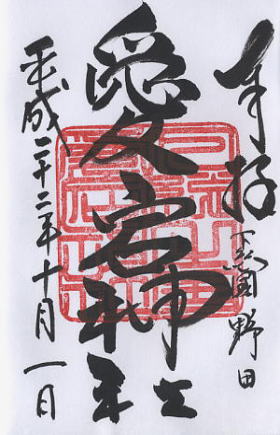 奉拝 下総國野田
愛宕神社
平成二十二年十月一日